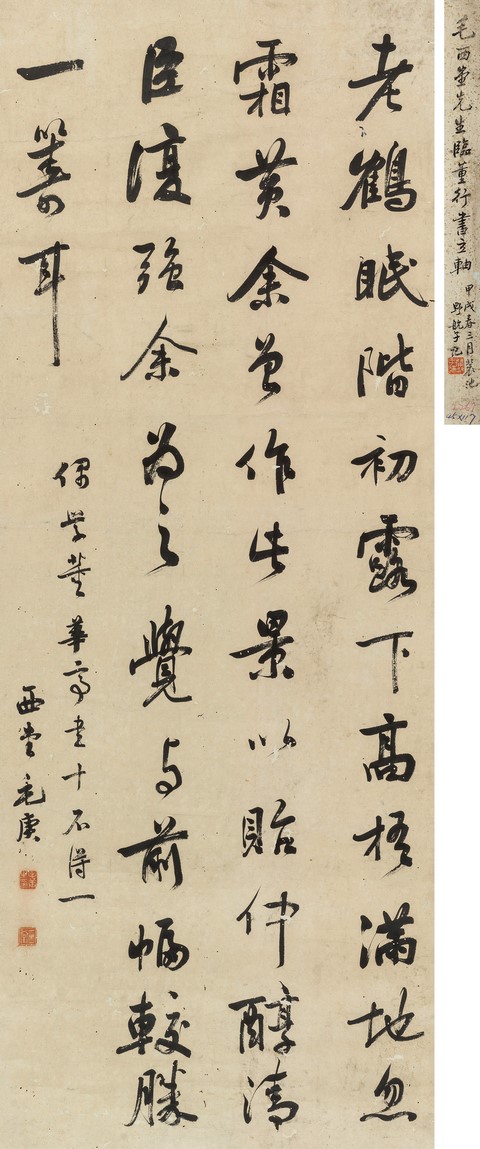 毛西堂先生臨董行書立軸
甲戌春三月裝池
老鶴眠階初露下高梧滿地忽
霜黄余曽作此景以貽仲醇清
臣復强余为之覺与前幅較勝
一籌耳
偶学董華亭书十不得一
西堂毛庚